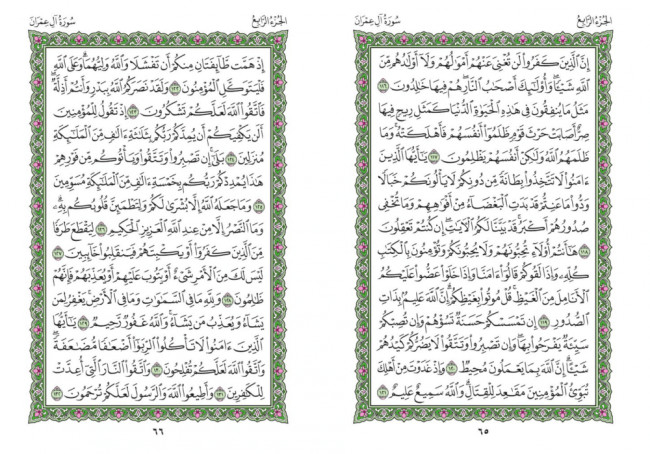 الجُزْءُ الرَّابِعُ
سُورَةُ آلِ عِمْرَان
إِنَّ ٱلَّذِينَ كَفَرُوا۟ لَن تُغْنِىَ عَنْهُمْ أَمْوَٰلُهُمْ وَلَآ أَوْلَٰدُهُم مِّنَ
ٱللَّهِ شَيْـًٔا ۖ وَأُو۟لَٰٓئِكَ أَصْحَٰبُ ٱلنَّارِ ۚ هُمْ فِيهَا خَٰلِدُونَ ١١٦
مَثَلُ مَا يُنفِقُونَ فِى هَٰذِهِ ٱلْحَيَوٰةِ ٱلدُّنْيَا كَمَثَلِ رِيحٍ فِيهَا
صِرٌّ أَصَابَتْ حَرْثَ قَوْمٍ ظَلَمُوٓا۟ أَنفُسَهُمْ فَأَهْلَكَتْهُ ۚ وَمَا
ظَلَمَهُمُ ٱللَّهُ وَلَٰكِنْ أَنفُسَهُمْ يَظْلِمُونَ ١١٧ يَٰٓأَيُّهَا ٱلَّذِينَ
ءَامَنُوا۟ لَا تَتَّخِذُوا۟ بِطَانَةً مِّن دُونِكُمْ لَا يَأْلُونَكُمْ خَبَالًا
وَدُّوا۟ مَا عَنِتُّمْ قَدْ بَدَتِ ٱلْبَغْضَآءُ مِنْ أَفْوَٰهِهِمْ وَمَا تُخْفِى
صُدُورُهُمْ أَكْبَرُ ۚ قَدْ بَيَّنَّا لَكُمُ ٱلْءَايَٰتِ ۖ إِن كُنتُمْ تَعْقِلُونَ
١١٨ هَٰٓأَنتُمْ أُو۟لَآءِ تُحِبُّونَهُمْ وَلَا يُحِبُّونَكُمْ وَتُؤْمِنُونَ بِٱلْكِتَٰبِ
كُلِّهِۦ وَإِذَا لَقُوكُمْ قَالُوٓا۟ ءَامَنَّا وَإِذَا خَلَوْا۟ عَضُّوا۟ عَلَيْكُمُ
ٱلْأَنَامِلَ مِنَ ٱلْغَيْظِ ۚ قُلْ مُوتُوا۟ بِغَيْظِكُمْ ۗ إِنَّ ٱللَّهَ عَلِيمٌۢ بِذَاتِ
ٱلصُّدُورِ ١١٩ إِن تَمْسَسْكُمْ حَسَنَةٌ تَسُؤْهُمْ وَإِن تُصِبْكُمْ
سَيِّئَةٌ يَفْرَحُوا۟ بِهَا ۖ وَإِن تَصْبِرُوا۟ وَتَتَّقُوا۟ لَا يَضُرُّكُمْ كَيْدُهُمْ
شَيْـًٔا ۗ إِنَّ ٱللَّهَ بِمَا يَعْمَلُونَ مُحِيطٌ ١٢٠ وَإِذْ غَدَوْتَ مِنْ أَهْلِكَ
تُبَوِّئُ ٱلْمُؤْمِنِينَ مَقَٰعِدَ لِلْقِتَالِ ۗ وَٱللَّهُ سَمِيعٌ عَلِيمٌ ١٢١
٦٥
الجُزْءُ الرَّابِعُ
سُورَةُ آلِ عِمْرَان
إِذْ هَمَّت طَّآئِفَتَانِ مِنكُمْ أَن تَفْشَلَا وَٱللَّهُ وَلِيُّهُمَا ۗ وَعَلَى ٱللَّهِ
فَلْيَتَوَكَّلِ ٱلْمُؤْمِنُونَ ١٢٢ وَلَقَدْ نَصَرَكُمُ ٱللَّهُ بِبَدْرٍ وَأَنتُمْ أَذِلَّةٌ ۖ
فَٱتَّقُوا۟ ٱللَّهَ لَعَلَّكُمْ تَشْكُرُونَ ١٢٣ إِذْ تَقُولُ لِلْمُؤْمِنِينَ
أَلَن يَكْفِيَكُمْ أَن يُمِدَّكُمْ رَبُّكُم بِثَلَٰثَةِ ءَالَٰفٍ مِّنَ ٱلْمَلَٰٓئِكَةِ
مُنزَلِينَ ١٢٤ بَلَىٰٓ ۚ إِن تَصْبِرُوا۟ وَتَتَّقُوا۟ وَيَأْتُوكُم مِّن فَوْرِهِمْ
هَٰذَا يُمْدِدْكُمْ رَبُّكُم بِخَمْسَةِ ءَالَٰفٍ مِّنَ ٱلْمَلَٰٓئِكَةِ مُسَوِّمِينَ
١٢٥ وَمَا جَعَلَهُ ٱللَّهُ إِلَّا بُشْرَىٰ لَكُمْ وَلِتَطْمَئِنَّ قُلُوبُكُم بِهِۦ ۗ
وَمَا ٱلنَّصْرُ إِلَّا مِنْ عِندِ ٱللَّهِ ٱلْعَزِيزِ ٱلْحَكِيمِ ١٢٦ لِيَقْطَعَ طَرَفًا
مِّنَ ٱلَّذِينَ كَفَرُوٓا۟ أَوْ يَكْبِتَهُمْ فَيَنقَلِبُوا۟ خَآئِبِينَ ١٢٧
لَيْسَ لَكَ مِنَ ٱلْأَمْرِ شَىْءٌ أَوْ يَتُوبَ عَلَيْهِمْ أَوْ يُعَذِّبَهُمْ فَإِنَّهُمْ
ظَٰلِمُونَ ١٢٨ وَلِلَّهِ مَا فِى ٱلسَّمَٰوَٰتِ وَمَا فِى ٱلْأَرْضِ ۚ يَغْفِرُ لِمَن
يَشَآءُ وَيُعَذِّبُ مَن يَشَآءُ ۚ وَٱللَّهُ غَفُورٌ رَّحِيمٌ ١٢٩ يَٰٓأَيُّهَا
ٱلَّذِينَ ءَامَنُوا۟ لَا تَأْكُلُوا۟ ٱلرِّبَوٰٓا۟ أَضْعَٰفًا مُّضَٰعَفَةً ۖ
وَٱتَّقُوا۟ ٱللَّهَ لَعَلَّكُمْ تُفْلِحُونَ ١٣٠ وَٱتَّقُوا۟ ٱلنَّارَ ٱلَّتِىٓ أُعِدَّتْ
لِلْكَٰفِرِينَ ١٣١ وَأَطِيعُوا۟ ٱللَّهَ وَٱلرَّسُولَ لَعَلَّكُمْ تُرْحَمُونَ ١٣٢
٦٦